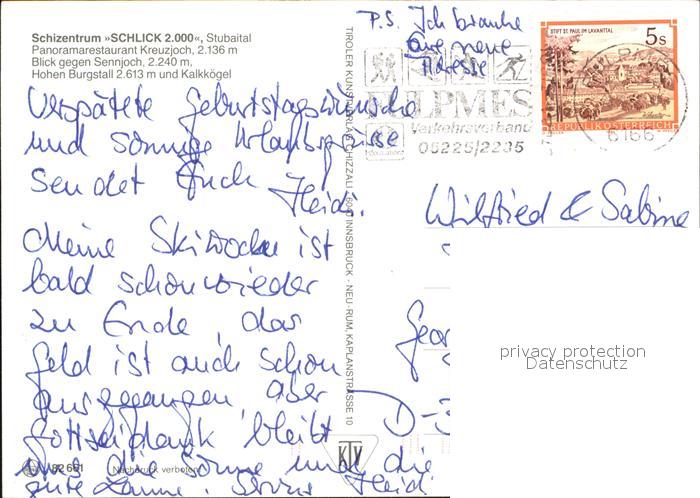 Schizentrum »SCHLICK 2.000«, Stubaital
Panoramarestaurant Kreuzjoch, 2.136 m
Blick gegen Sennjoch, 2.240 m,
Hohen Burgstall 2.613 m und Kalkkögel
Verspätete Geburtstagswünsche
und sonnige Urlaubsgrüsse
sendet Euch Heidi.
Meine Skiwoche ist
bald schon wieder
zu Ende, das
Geld ist auch schon
ausgegangen, aber
Gottseidank bleibt
uns die Sonne und die
gute Laune. Servus Heidi
82 661
Nachdruck verboten
TIROLER KUNSTVERLAG CHIZZALI, 6040 INNSBRUCK - NEU-RUM, KAPLANSTRASSE 10
KTV
P.S. Ich brauche
Eure neue
Adresse
FULPMES
Verkehrsverband
05225/2235
STIFT ST. PAUL IM LAVANTTAL
5s
REPUBLIK ÖSTERREICH
6166
Wilfried & Sabine
Geor
D-3
privacy protection
Datenschutz